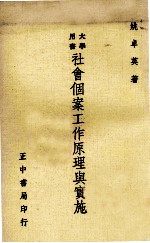 姚卓英著
大學用書
社會個案工作原理與實施
正中書局印行